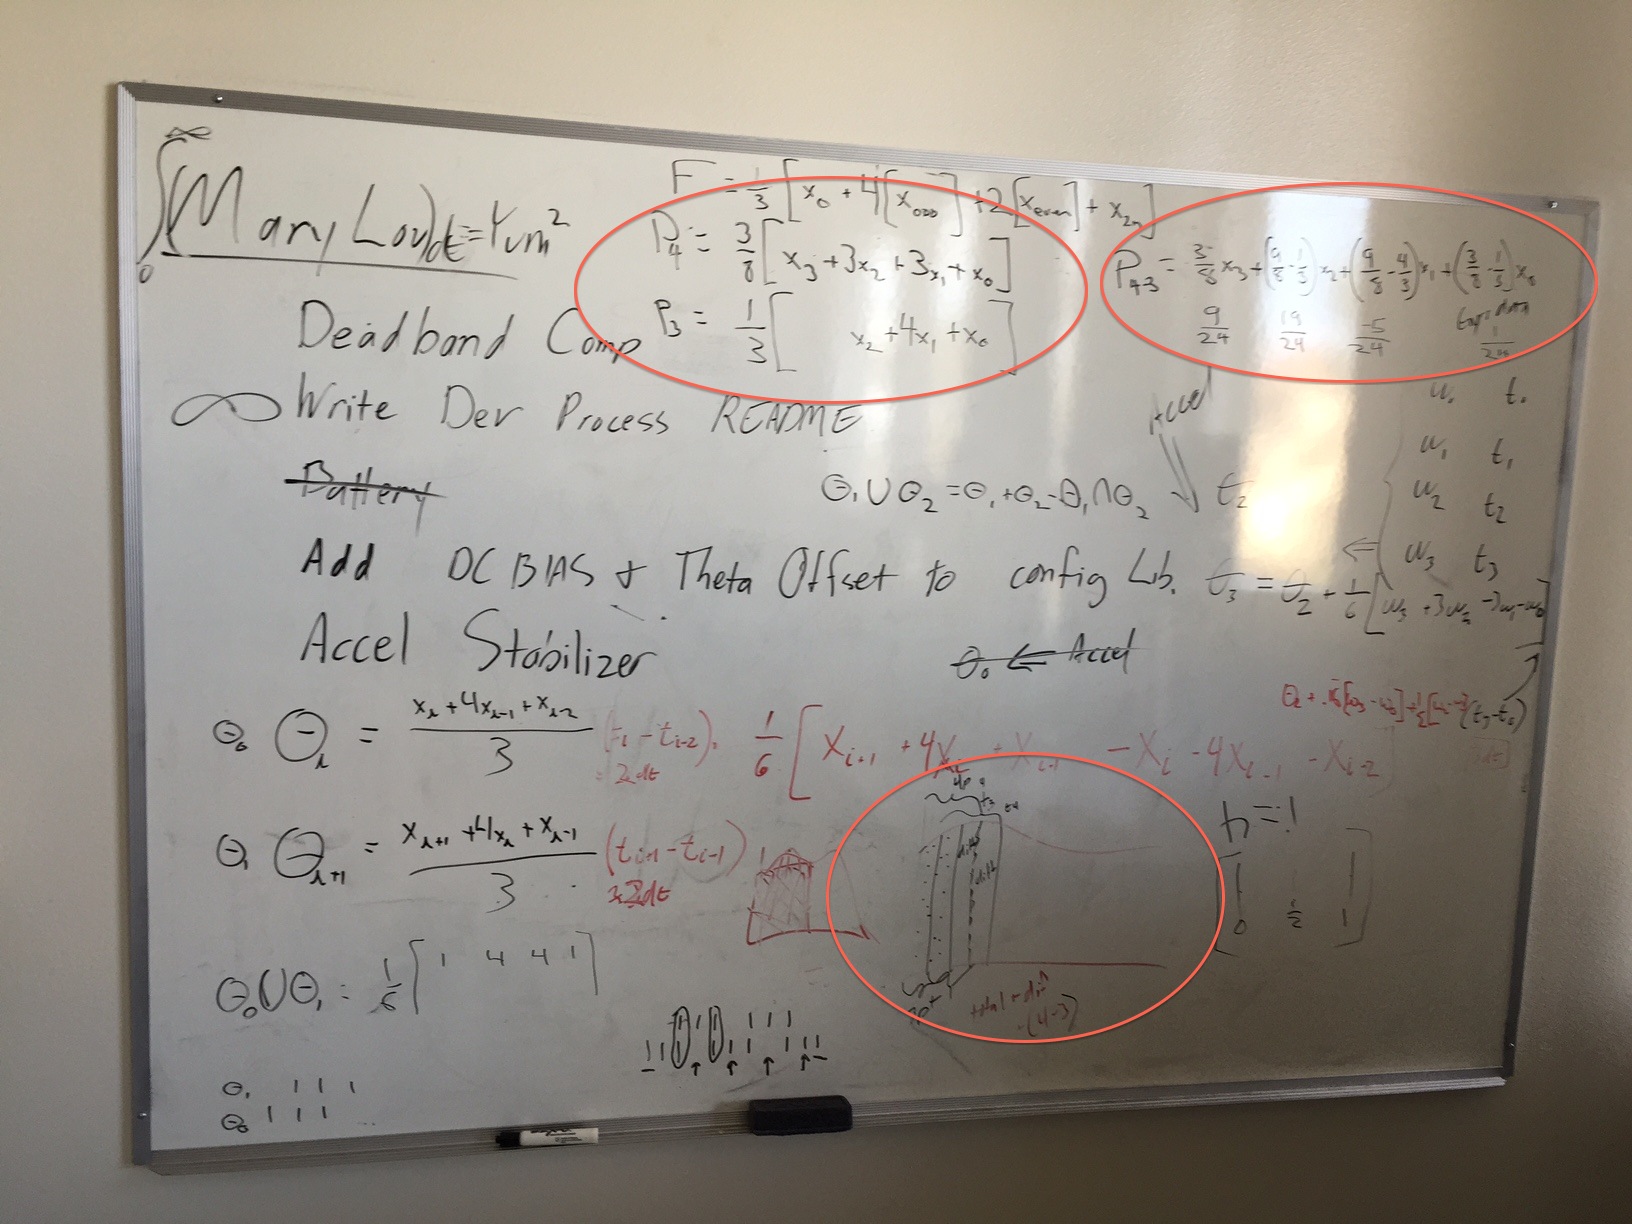 ∫₀^∞ (Mary Lou)dt = Yum²
F = 1/3 [x₀ + 4[x_ODD] + 2[x_even] + x_2n]
P₄ = 3/8 [x₃ + 3x₂ + 3x₁ + x₀]
P₃ = 1/3 [x₂ + 4x₁ + x₀]
P₄₋₃ = 3/8 x₃ + (9/8 - 1/3) x₂ + (9/8 - 4/3) x₁ + (3/8 - 1/3) x₀
9/24 19/24 -5/24 1/24
Deadband Comp
∞ Write Dev Process README
Battery
Add DC BIAS & Theta Offset to config Lib.
Accel Stabilizer
Accel
θ₁ ∪ θ₂ = θ₁ + θ₂ - θ₁ ∩ θ₂
t₂
w₀ t₀
w₁ t₁
w₂ t₂
⇐ w₃ t₃
θ₃ = θ₂ + 1/6 [w₃ + 3w₂ - 3w₁ - w₀]
θ₀ ⇐ Accel
(t₃ - t₀)
θ₀ θ_i = (x_i + 4x_{i-1} + x_{i-2})/3 (t_i - t_{i-2}).
2dt
1/6 [x_{i+1} + 4x_i + x_{i-1} - x_i - 4x_{i-1} - x_{i-2}]
θ₁ θ_{i+1} = (x_{i+1} + 4x_i + x_{i-1})/3 (t_{i+1} - t_{i-1})
2dt
t₃ t₄
h = 1
0 1/2 1
θ₀ ∪ θ₁ = 1/6 [1 4 4 1]
total + diff
-(4-3)
θ₁ 1 1 1
θ₀ 1 1 1